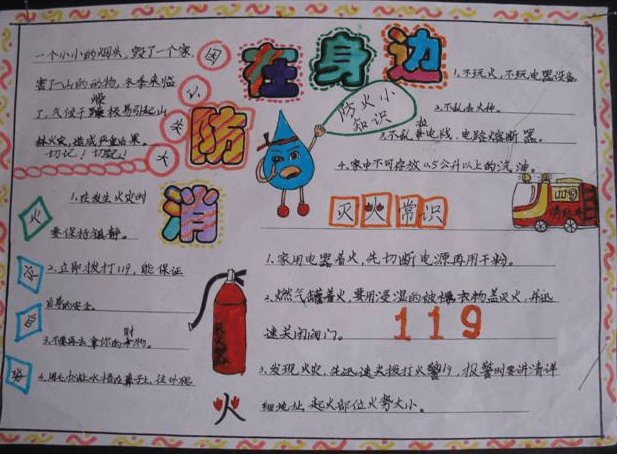 消防在身边
一个小小的烟头,毁了一个家,
害了一山的动物,冬季来临
了,气候干燥极易引起山
林火灾,造成严重后果。
切记!切记!
防火小
知识
1.不玩火,不玩电器设备
2.不乱丢火种。
3.不乱拉电线、电路熔断器。
4.家中不可存放0.5公升以上的汽油。
1.在发生火灾时
要保持镇静。
2.立即拨打119,能保证
自身的安全。
3.不要再去拿你的财物。
火
灭火常识
1.家用电器着火,先切断电源再用干粉。
2.燃气罐着火,要用浸湿的被褥衣物盖灭火,并迅
速关闭阀门。
119
3.发现火灾,先迅速拨打火警119,报警时要讲清详
细地址、起火部位火势大小。
火